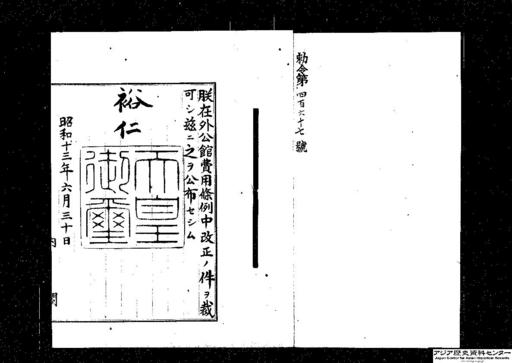 勅令第四百六十七號
朕在外公館費用條例中改正ノ件ヲ裁
可シ茲ニ之ヲ公布セシム
裕仁
天皇
御璽
昭和十三年六月三十日
内閣
アジア歴史資料センター
Japan Center for Asian Historical Records